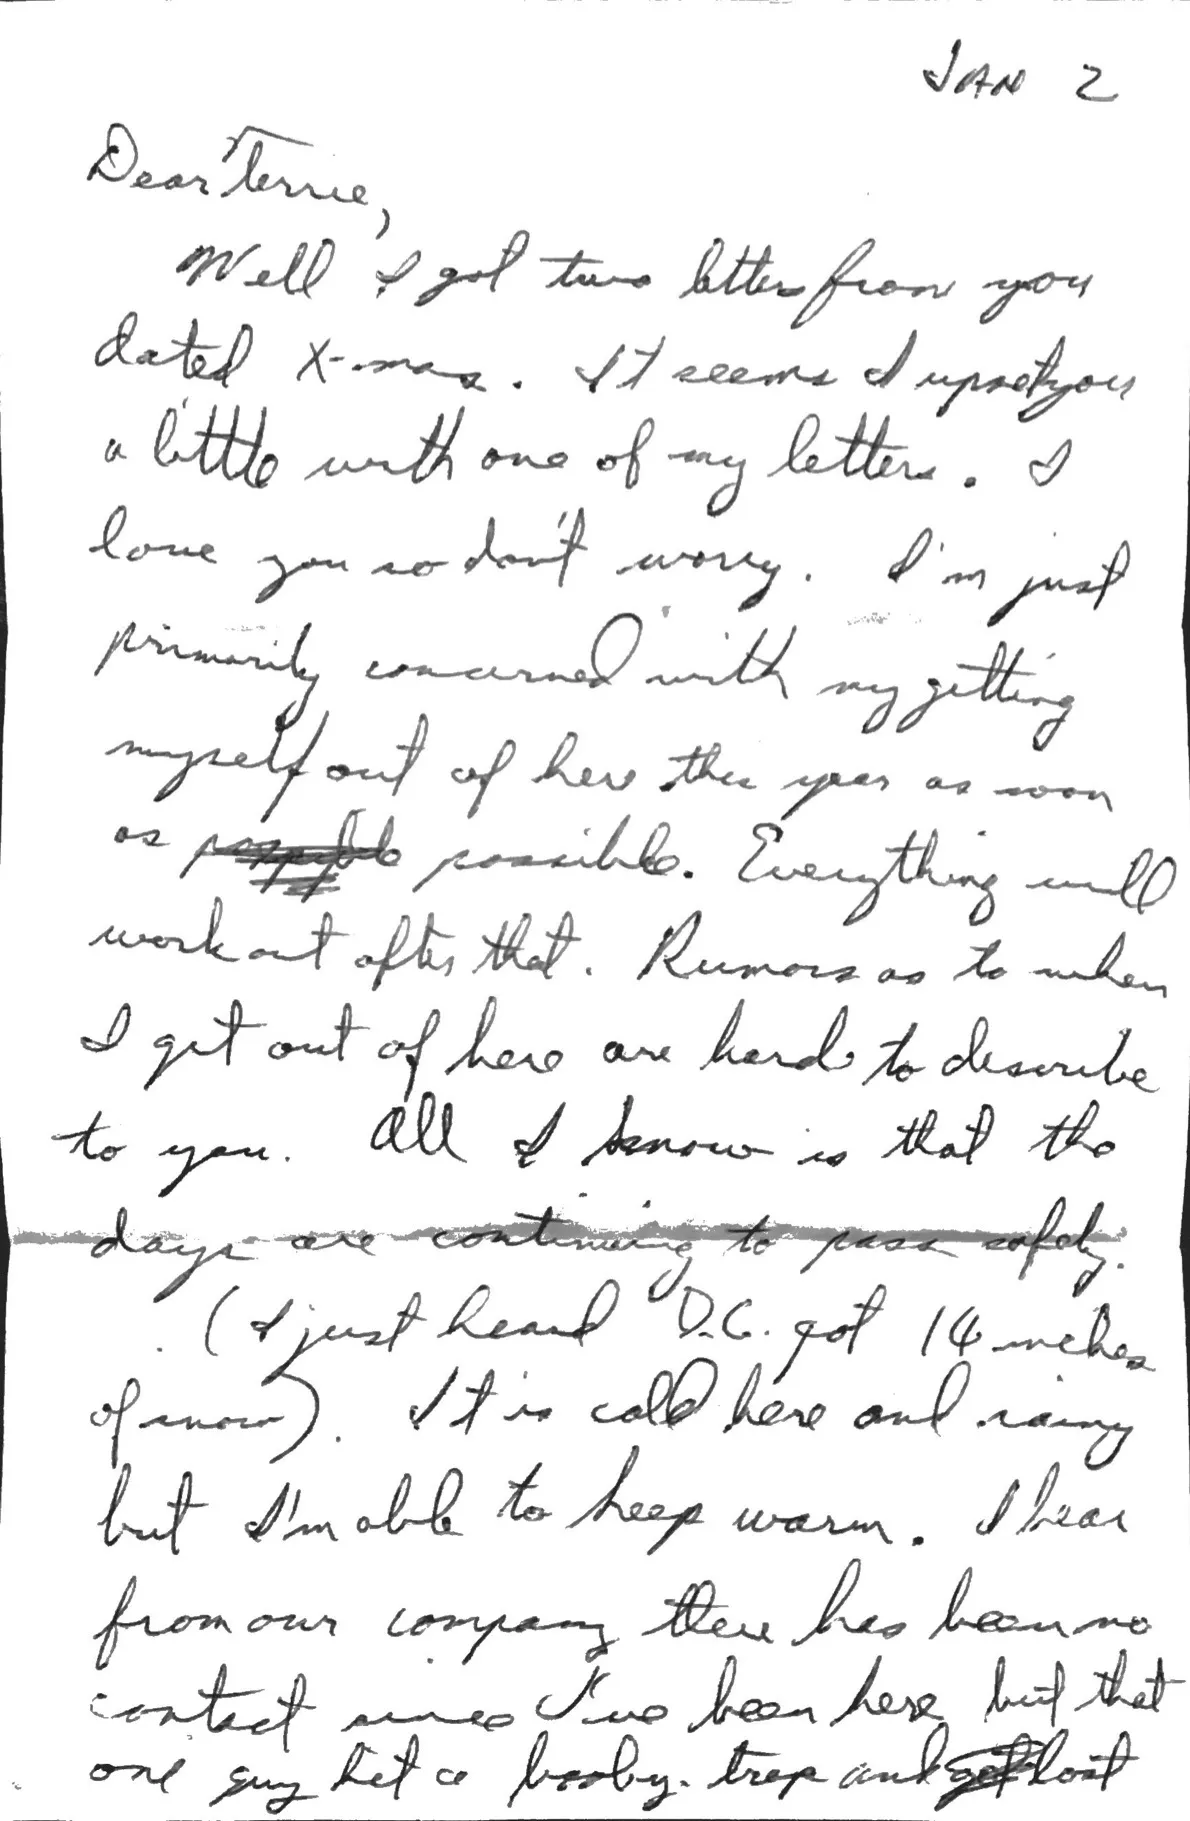 JAN 2
Dear Terrie,
Well I got two letters from you
dated X-mas. It seems I upset you
a little with one of my letters. I
love you so don't worry. I'm just
primarily concerned with my getting
myself out of here this year as soon
as possible. Everything will
work out after that. Rumors as to when
I get out of here are hard to describe
to you. All I know is that the
days are continuing to pass safely.
(I just heard D.C. got 14 inches
of snow). It is cold here and rainy
but I'm able to keep warm. I hear
from our company there has been no
contact since I've been here but that
one guy hit a booby-trap and lost